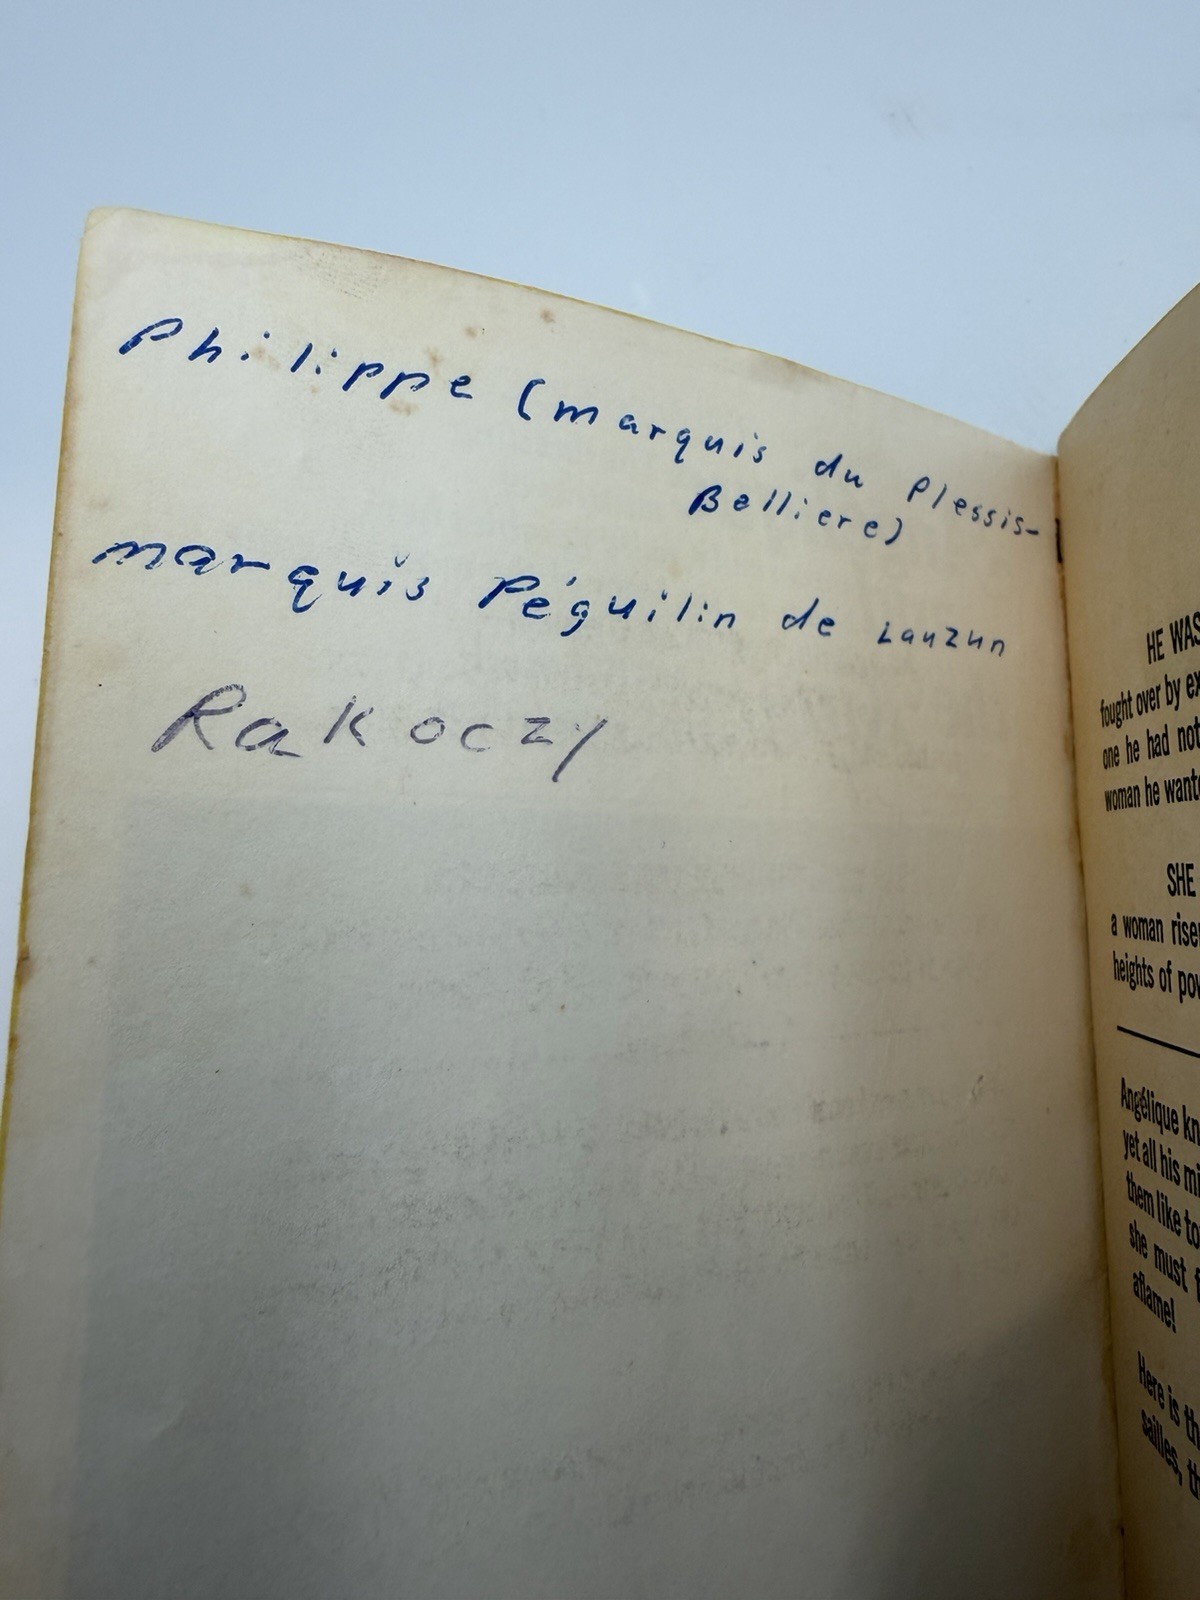 Philippe (marquis du Plessis-
Belliere)
marquis Péguilin de Lauzun
Rakoczy
HE WAS
fought over by ex
one he had not
woman he wante
SHE
a woman rise
heights of pow
Angélique kn
yet all his mi
them like to
she must f
aflame!
Here is th
sailles, th